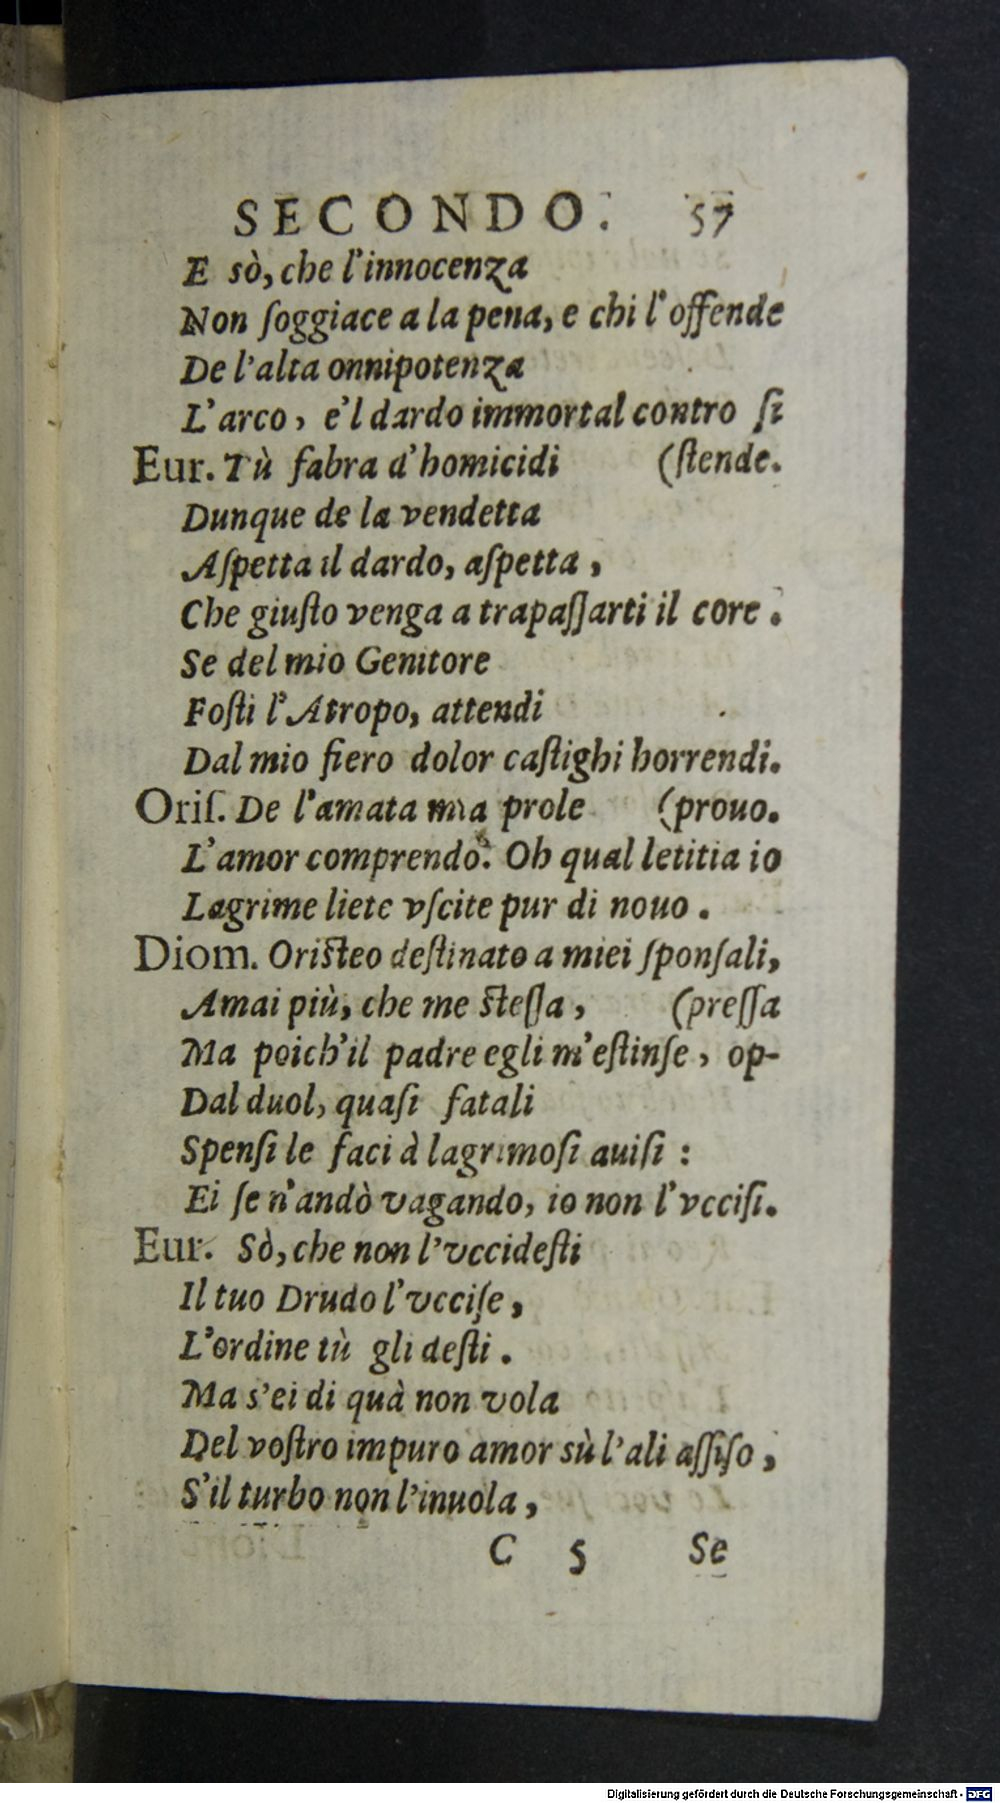 SECONDO. 57
E sò, che l'innocenza
Non ſoggiace a la pena, e chi l'offende
De l'alta onnipotenza
L'arco, e'l dardo immortal contro ſi
Eur. Tù fabra d'homicidi (ſtende.
Dunque de la vendetta
Aſpetta il dardo, aſpetta,
Che giuſto venga a trapaſſarti il core.
Se del mio Genitore
Foſti l'Atropo, attendi
Dal mio fiero dolor caſtighi horrendi.
Oriſ. De l'amata mia prole (prouo.
L'amor comprendo. Oh qual letitia io
Lagrime liete vſcite pur di nouo.
Diom. Oriſteo deſtinato a miei ſponſali,
Amai più, che me ſteſſa, (preſſa
Ma poich'il padre egli m'eſtinſe, op-
Dal duol, quaſi fatali
Spenſi le faci à lagrimoſi auiſi:
Ei ſe n'andò vagando, io non l'vcciſi.
Eur. Sò, che non l'vccideſti
Il tuo Drudo l'vcciſe,
L'ordine tù gli deſti.
Ma s'ei di quà non vola
Del voſtro impuro amor sù l'ali aſſiſo,
S'il turbo non l'inuola,
C 5 Se
Digitalisierung gefördert durch die Deutsche Forschungsgemeinschaft - DFG